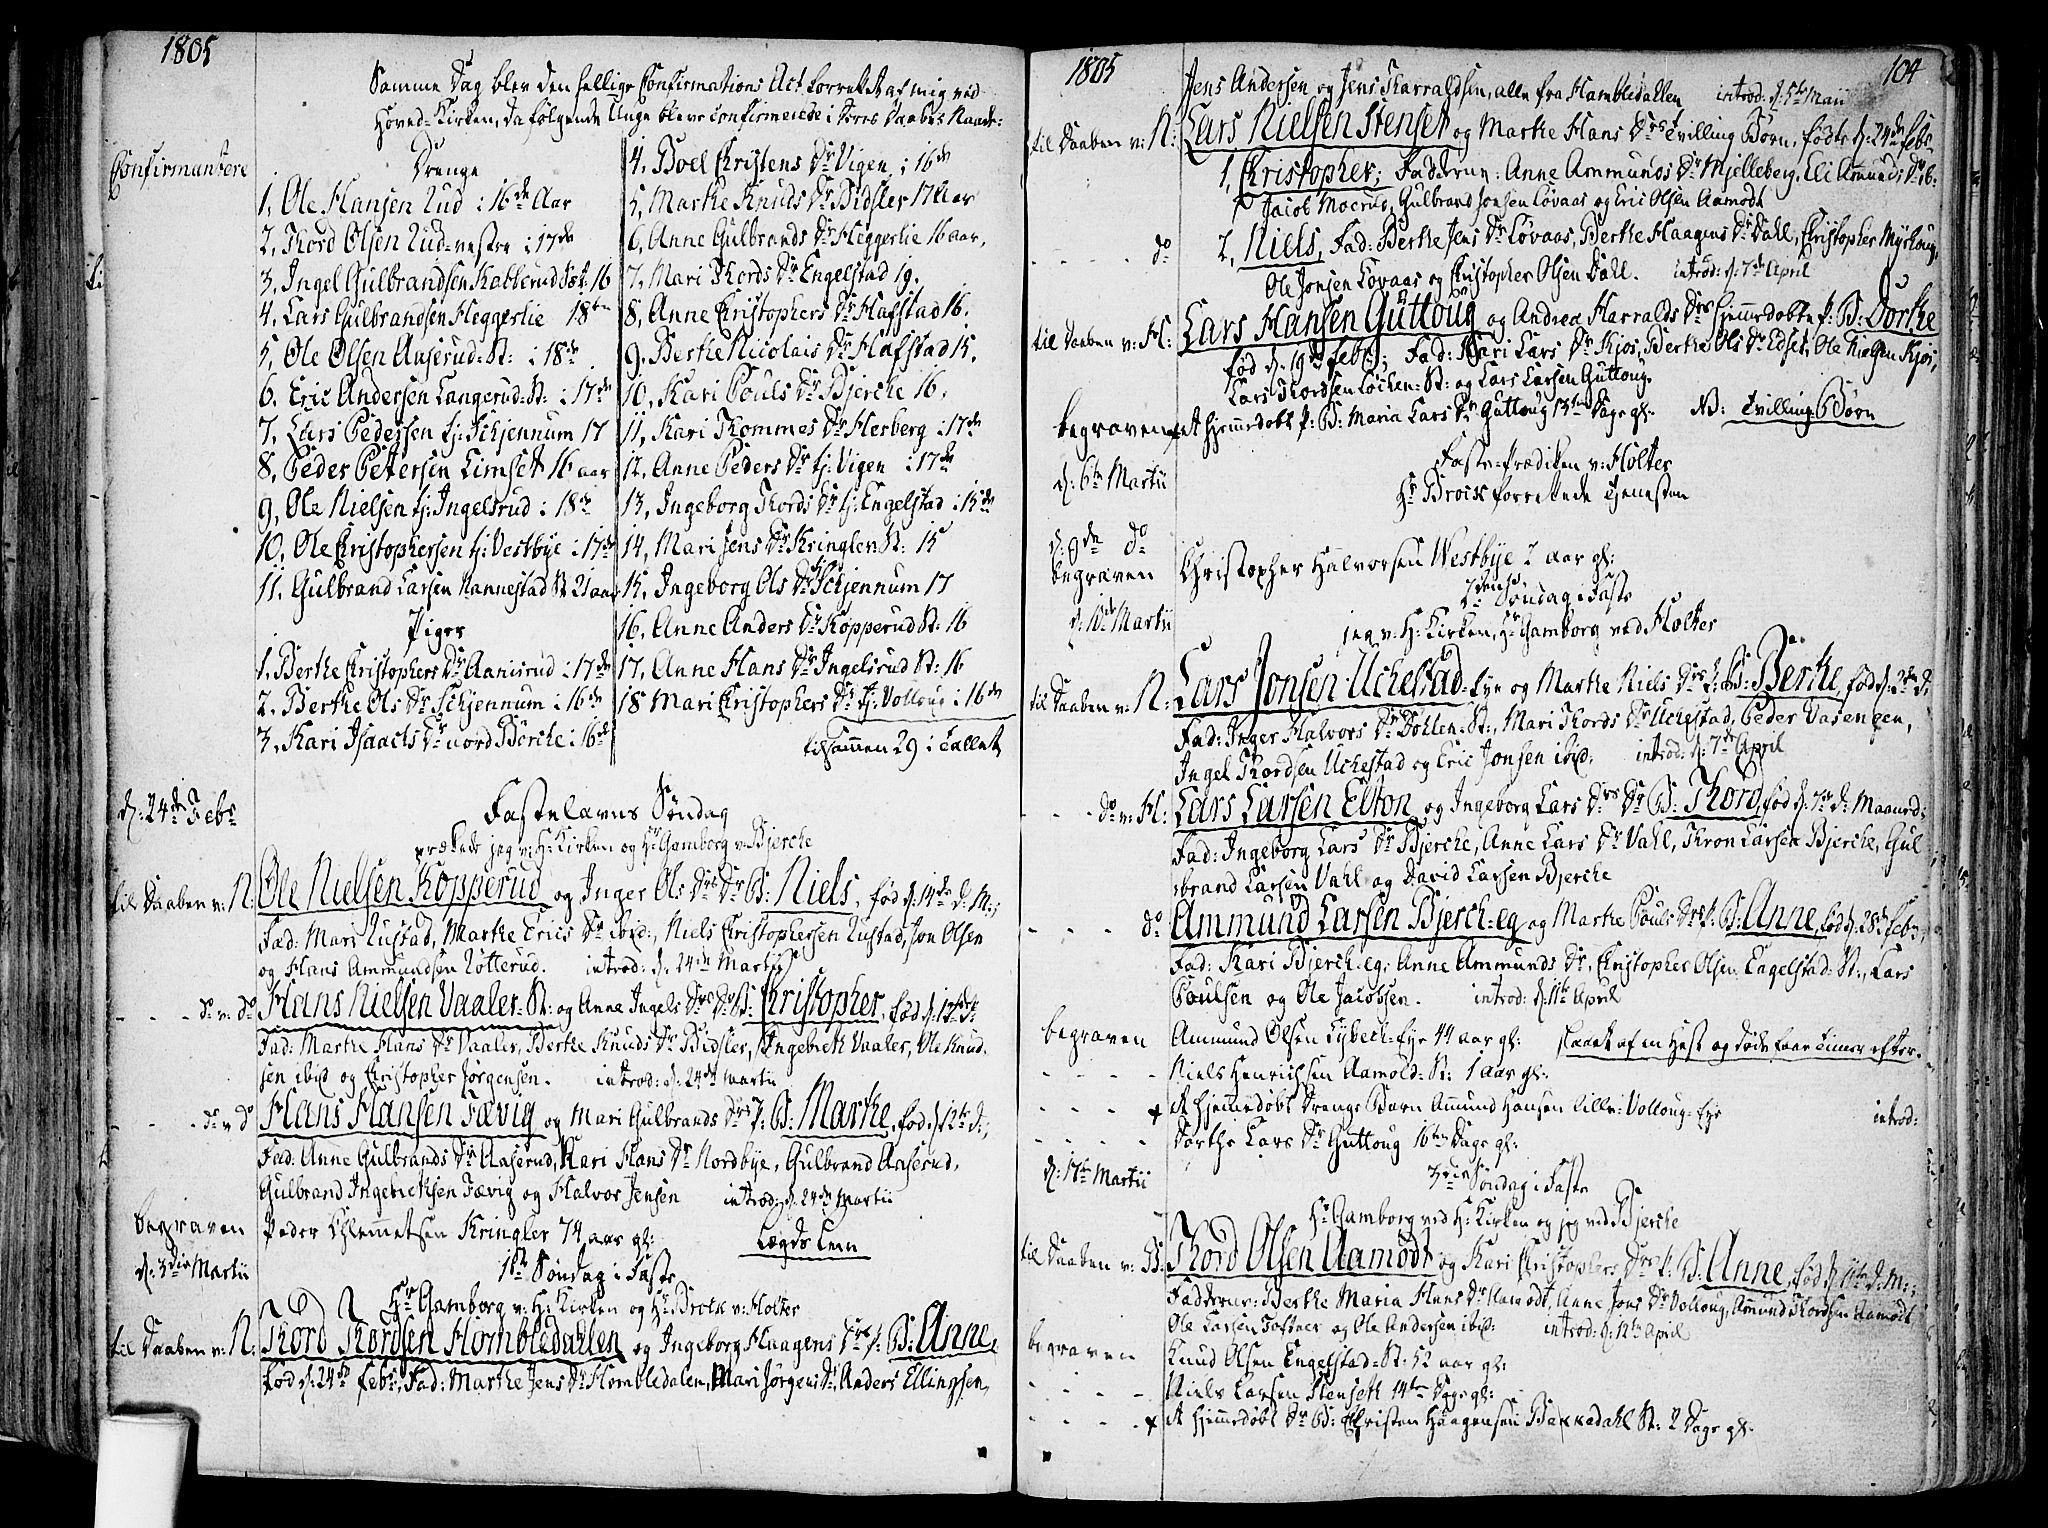 1805
Samme Dag blev den hellige Confirmations Act forrettet af mig ved
Hoved-Kirken, da følgende Unge bleve confirmerede i deres Daabes Naade:
Confirmantere
Drenge
1, Ole Hansen Rud : 16de Aar
2, Thord Olsen Rud-vestre : 17de
3, Ingel Gulbrandsen Kabberud Sæt: 16
4. Lars Gulbrandsen Heggerlie 18ten
5, Ole Olsen Aaserud: St: : 18de
6. Eric Andersen Langerud: St: : 17de
7. Lars Pedersen tj: Schjennum 17
8. Peder Petersen Limset 16 aar
9, Ole Nielsen tj: Ingelsrud : 18de
10, Ole Christophersen tj: Vestbye : 17de
11. Gulbrand Larsen Nannestad St 21 aar
Piger
1. Berthe Christophers Dr Aanisrud : 17de
2. Berthe Ols Dr Schjennum : 16de
3. Kari Isaachs Dr nord Bierche : 16de
4. Boel Christens Dr Vigen : 16de
5, Marthe Knuds Dr Bidsler 17 Aar
6, Anne Gulbrands Dr Heggerlie 16 aar,
7, Mari Thords Dr Engelstad 19.
8, Anne Christophers Dr Hafstad 16.
9. Berthe Nicolais Dr Hafstad 15.
10, Kari Pouls Dr Bjerche 16.
11, Kari Thommes Dr Herberg : 17de
12, Anne Peders Dr tj: Vigen : 17de
13, Ingeborg Thords Dr tj: Engelstad : 15de
14, Mari Jens Dr Kringler St: 15
15, Ingeborg Ols Dr Schjennum 17
16. Anne Anders Dr Kopperud St: 16
17. Anne Hans Dr Ingelsrud St: 16
18 Mari Christophers Dr tj: Volloug : 16de
tilsammen 29 i Tallet
d: 24de Febr
Fastelavns Søndag
prækede jeg v: H: Kirken og Hr Gamborg v: Bjerche
til Daaben v: N: Ole Nielsen Kopperud og Inger Ols Drs Dr B: Niels, fød d: 14de d: M:;
Fad: Mari Rustad, Marthe Erics Dr ibid:, Niels Christophersen Rustad, Jon Olsen
og Hans Ammundsen Røtterud. introd: d: 24de Martii
- - - do v: do Hans Nielsen Vaaler-St: og Anne Ingels Drs Dr B: Christopher, fød d: 12de d:
Fad: Marthe Hans Dr Vaaler, Berthe Knuds Dr Bidsler, Ingebreth Vaaler, Ole Knud-
sen ibid og Christopher Jørgensen. introd: d: 24de Martii
- - - do v do Hans Hansen Fævig og Mari Gulbrands Drs P: B: Marthe, fød d: 12te d:;
Fad: Anne Gulbrands Dr Aaserud, Kari Hans Dr Nordbye, Gulbrand Aaserud,
Gulbrand Ingebrethsen Fævig og Halvor Jensen introd: d: 24de Martii
begraven Peder Clemmetsen Kringler 74 aar gl: Lægds Lem
d: 3die Martii 1ste Søndag i Faste
Hr Gamborg v: H: Kirken og Hr Brock v: Holter
til Daaben v: N: Thord Thordsen Hombledahlen og Ingeborg Haagens Drs P: B: Anne,
fød d: 24de Febr, Fad: Marthe Jens Dr Hombledalen, Mari Jørgens Dr, Anders Ellingsen,
1805 104
Jens Andersen og Jens Harraldsen, alle fra Hambledallen introd: d: 5te Maii
til Daaben v: N: Lars Nielsen Stenset og Marthe Hans Drs Tvilling Børn, fødte d: 24de Febr,
1, Christopher; Fadderne: Anne Ammunds Dr Mjelleberg, Eli Amunds Dr ib:
Jacob Moerud, Gulbrand Jonsen Løvaas og Eric Olsen Aamodt
- - - - do 2, Niels, Fad: Berthe Jens Dr Løvaas, Berthe Haagens Dr Dahl, Christopher Myhoug,
Ole Jonsen Løvaas og Christopher Olsen Dahl. introd: d: 7de April
til Daaben v: H: Lars Hansen Guttoug og Andrea Harralds Drs hjemmedøbte P: B: Dorthe
fød d: 19de Febr; Fad: Kari Lars Dr Kjos, Berthe Ols Dr Edset, Ole Nielsen Kjos,
Lars Thordsen Løchen-St: og Lars Larsen Guttoug.
begraven et hjemmedøbt P: B: Maria Lars Dr Guttoug 13ten Dage gl: NB: Tvilling Børn
d: 6te Martii
Faste-Prædiken v: Holter
Hr Brock forrettede Tjenesten
d: 9de do
begraven Christopher Halvorsen Westbye 2 aar gl:
d: 10de Martii
2den Søndag i Faste
jeg v: H: Kirken, Hr Gamborg ved Holter
til Daaben v: N: Lars Jonsen Uchestad-Eye og Marthe Niels Drs P: B: Berthe, fød d: 2de d:
Fad: Inger Halvors Dr Døhlen-St:, Mari Thords Dr Uchestad, Peder Vasengen,
Ingel Thordsen Uchestad og Eric Jonsen ibid: introd: d: 7de April
- - - do v: H: Lars Larsen Elton og Ingeborg Lars Drs Dr B: Thord, fød d: 7de d: Maaned:
Fad: Ingeborg Lars Dr Bjerche, Anne Lars Dr Vahl, Thron Larsen Bjerche, Gul
brand Larsen Vahl og David Larsen Bjerche
- - - do Ammund Larsen Bjerch-eg og Marthe Pouls Drs P: B: Anne, fød d: 28de Febr,
Fad: Kari Bjerch-eg, Anne Ammunds Dr, Christopher Olsen Engelstad-St:, Lars
Poulsen og Ole Jacobsen. introd: d: 11te April
begraven Ammund Olsen Lybech-Eye 44 aar gl: slaaet af en Hest og døde faae Timer efter.
- - - - Niels Henrichsen Aamold-St: 1 aar gl:
- - - - et hjemmedøbt Drenge Barn Amund Hansen Lille-Volloug-Eye introd:
- - - - Dorthe Lars Dr Guttoug 16ten Dage gl:
d: 17de Martii
3die Søndag i Faste
Hr Gamborg ved H: Kirken og jeg ved Bjerche
til Daaben v: B: Thord Olsen Aamodt og Kari Christophers Drs P: B: Anne, fød d: 11te d: M:;
Fadderne: Berthe Maria Hans Dr Aamodt, Anne Jons Dr Volloug, Amund Thordsen Aamodt
Ole Larsen Toftner og Ole Andersen ibid: introd: d: 12te April
begraven Knud Olsen Engelstad-St: 52 aar gl:
- - - - Niels Larsen Stenseth 14ten Dage gl:
- - - - et hjemmedøbt Dr B: Christen Haagensen Bakkedahl St: 2 Dage gl: